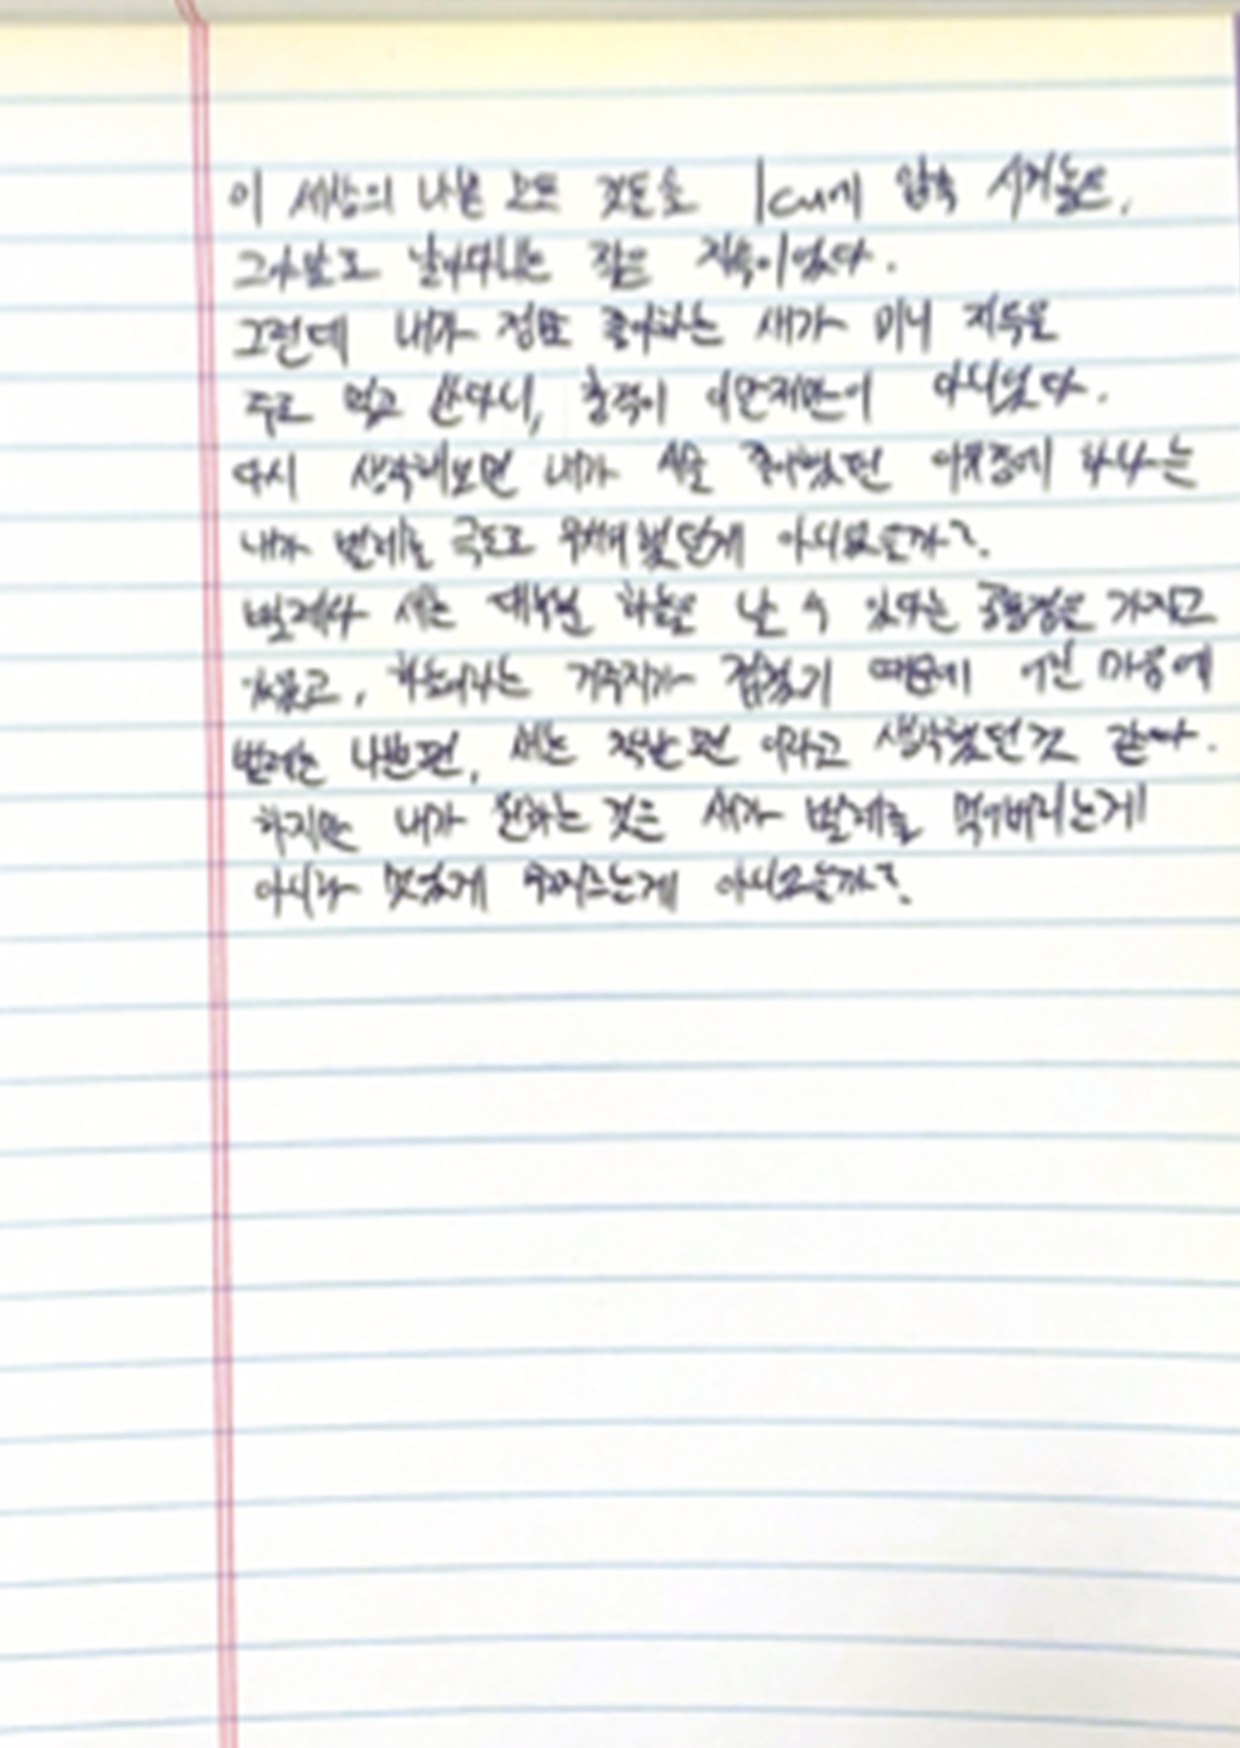 이 세상의 나쁜 모든 것들을 1cm에 압축 시켜놓은,
그야말로 날아다니는 작은 지옥이었다.
그런데 내가 정말 좋아하는 새가 미니 지옥을
주로 먹고 산다니, 충격이 이만저만이 아니었다.
다시 생각해보면 내가 새를 좋아했던 이유중에 하나는
내가 벌레를 극도로 무서워했던게 아니었을까?
벌레와 새는 대부분 하늘을 날 수 있다는 공통점을 가지고
있었고, 하늘이라는 거주지가 겹쳤기 때문에 어린 마음에
벌레는 나쁜편, 새는 착한편 이라고 생각했던것 같다.
하지만 내가 원하는 것은 새가 벌레를 먹어버리는게
아니라 멋있게 무찌르는게 아니었을까?